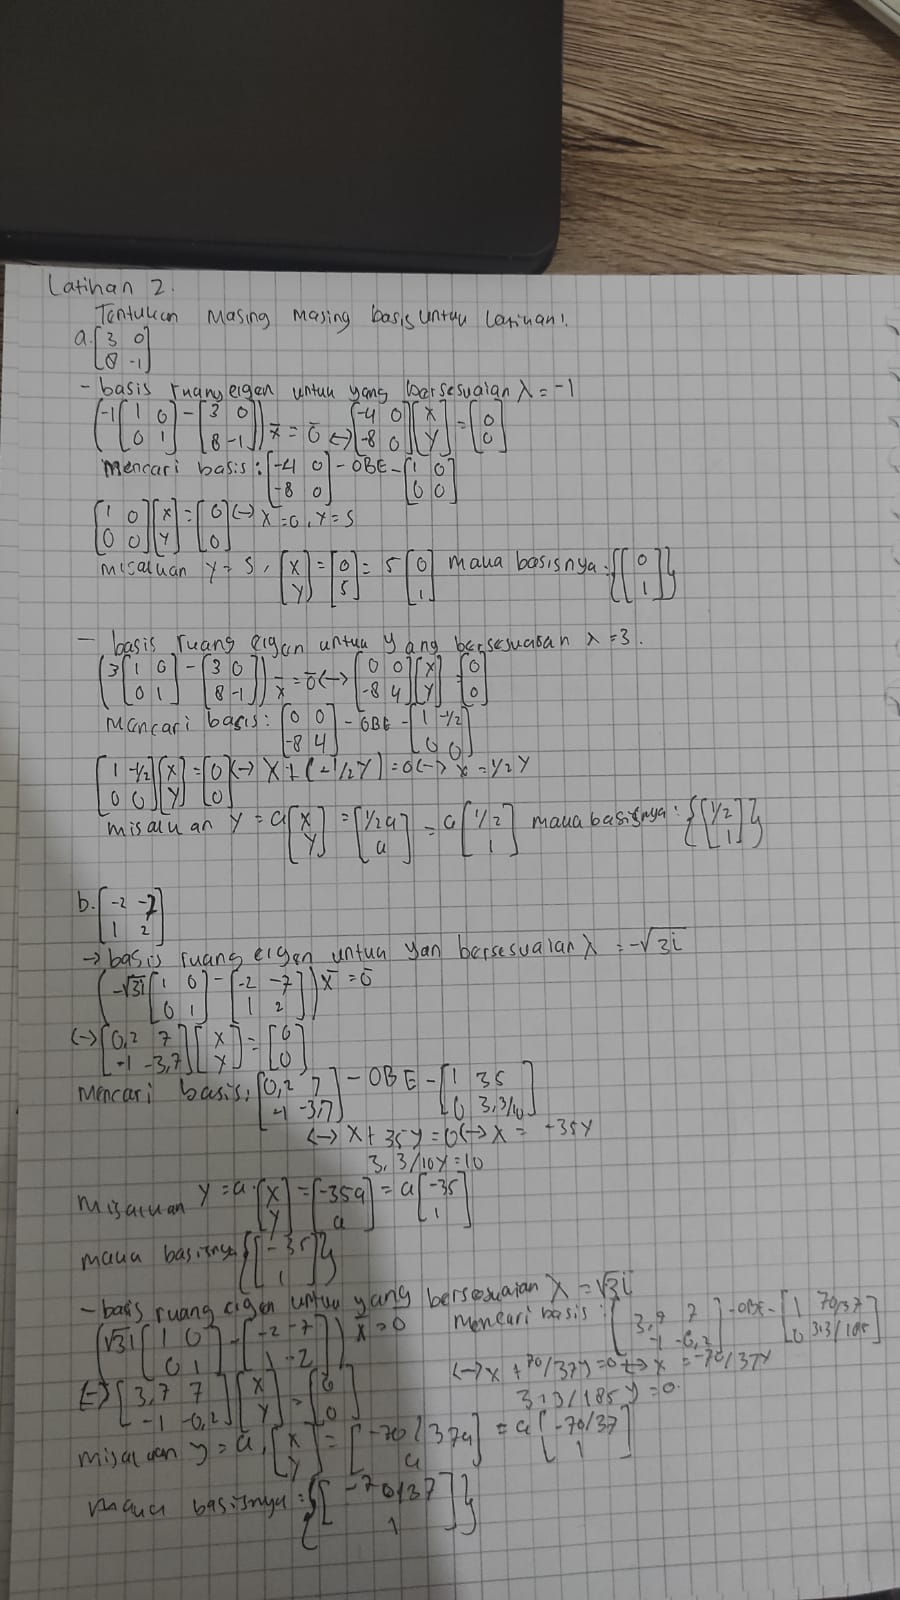 Latihan 2.
Tentukan masing masing basis untuk latihan!
a. [3 0; 8 -1]
- basis ruang eigen untuk yang bersesuaian λ = -1
(-1[1 0; 0 1] - [3 0; 8 -1]) x̄ = ō <-> [-4 0; -8 0][x; y] = [0; 0]
mencari basis: [-4 0; -8 0] - OBE - [1 0; 0 0]
[1 0; 0 0][x; y] = [0; 0] <-> x = 0, y = s
misalkan y = s, [x; y] = [0; s] = s [0; 1] maka basisnya: {[0; 1]}
- basis ruang eigen untuk yang bersesuaian λ = 3.
(3[1 0; 0 1] - [3 0; 8 -1]) x̄ = ō <-> [0 0; -8 4][x; y] = [0; 0]
mencari basis: [0 0; -8 4] - OBE - [1 -1/2; 0 0]
[1 -1/2; 0 0][x; y] = [0; 0] <-> x + (-1/2y) = 0 <-> x = 1/2y
misalkan y = a [x; y] = [1/2a; a] = a [1/2; 1] maka basisnya: {[1/2; 1]}
b. [-2 -7; 1 2]
-> basis ruang eigen untuk yan bersesuaian λ = -√3i
(-√3i [1 0; 0 1] - [-2 -7; 1 2]) x̄ = ō
<-> [0,2 7; -1 -3,7][x; y] = [0; 0]
mencari basis: [0,2 7; -1 -3,7] - OBE - [1 35; 0 3,3/10]
<-> x + 35y = 0 <-> x = -35y
3,3/10y = 10
misalkan y = a. [x; y] = [-35a; a] = a [-35; 1]
maka basisnya {[-35; 1]}
- basis ruang eigen untuk yang bersesuaian λ = √3i
(√3i [1 0; 0 1] - [-2 -7; 1 -2]) x̄ = 0
<-> [3,7 7; -1 -0,2][x; y] = [0; 0]
mencari basis: [3,7 7; -1 -0,2] - OBE - [1 70/37; 0 313/185]
<-> x + 70/37y = 0 <-> x = -70/37y
313/185y = 0.
misalkan y = a, [x; y] = [-70/37a; a] = a [-70/37; 1]
maka basisnya: {[-70/37; 1]}